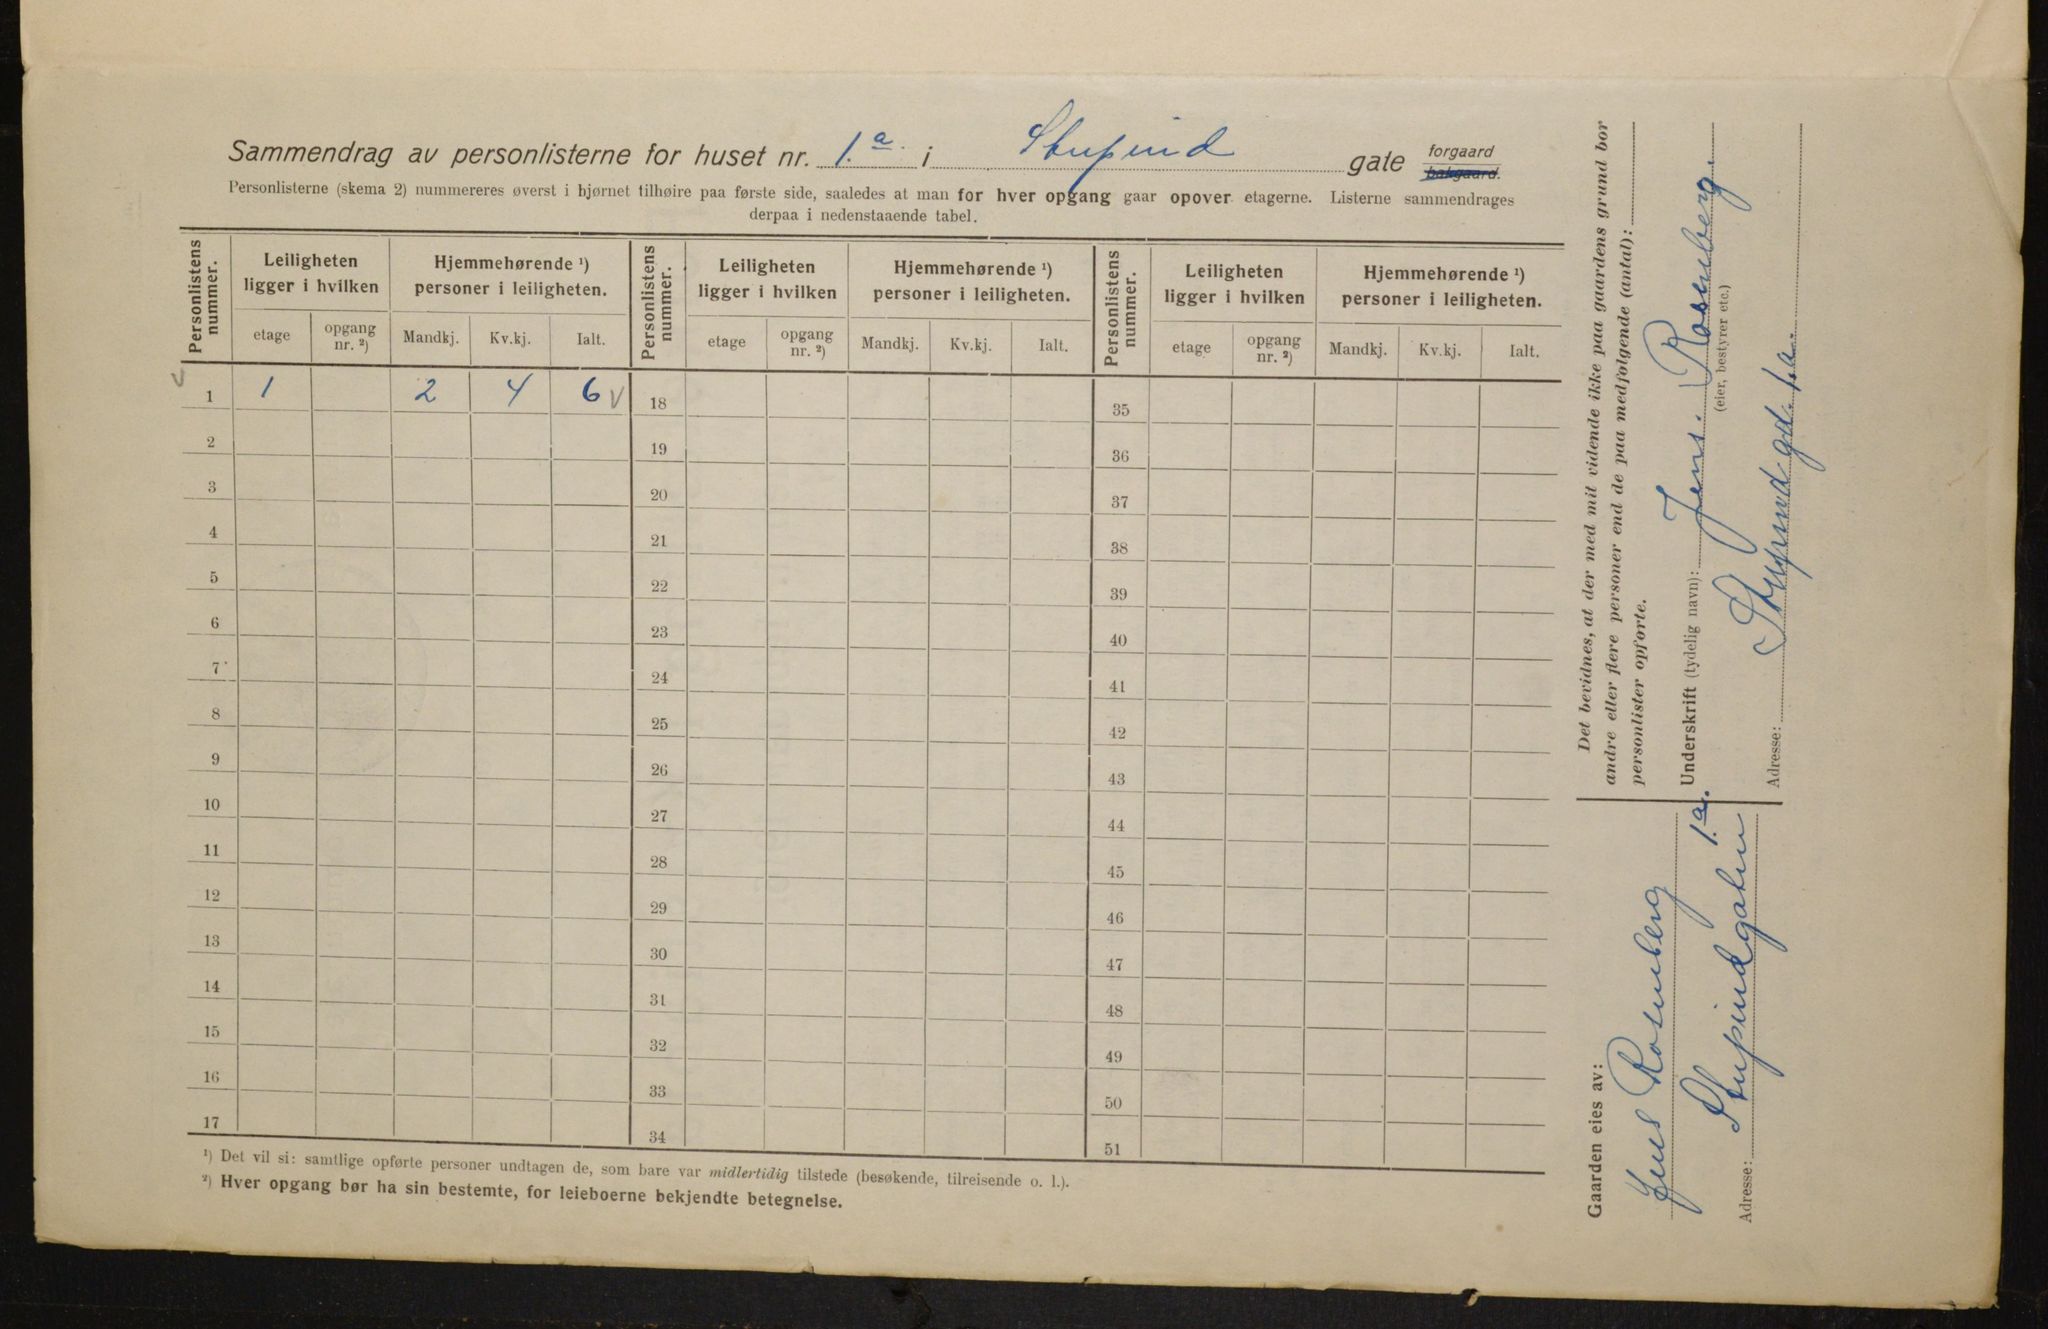 Sammendrag av personlisterne for huset nr. 1.a. i Stupind gate forgaard
bakgaard.
Personlisterne (skema 2) nummereres øverst i hjørnet tilhøire paa første side, saaledes at man for hver opgang gaar opover etagerne. Listerne sammendrages
derpaa i nedenstaaende tabel.
Personlistens nummer. Leiligheten ligger i hvilken Hjemmehørende ¹) personer i leiligheten. Personlistens nummer. Leiligheten ligger i hvilken Hjemmehørende ¹) personer i leiligheten. Personlistens nummer. Leiligheten ligger i hvilken Hjemmehørende ¹) personer i leiligheten.
etage opgang nr. ²) Mandkj. Kv.kj. Ialt. etage opgang nr. ²) Mandkj. Kv.kj. Ialt. etage opgang nr. ²) Mandkj. Kv.kj. Ialt.
1 1 2 4 6 18 35
2 19 36
3 20 37
4 21 38
5 22 39
6 23 40
7 24 41
8 25 42
9 26 43
10 27 44
11 28 45
12 29 46
13 30 47
14 31 48
15 32 49
16 33 50
17 34 51
¹) Det vil si: samtlige opførte personer undtagen de, som bare var midlertidig tilstede (besøkende, tilreisende o. l.).
²) Hver opgang bør ha sin bestemte, for leieboerne bekjendte betegnelse.
Det bevidnes, at der med mit vidende ikke paa gaardens grund bor
andre eller flere personer end de paa medfølgende (antal):
personlister opførte.
Underskrift (tydelig navn): Jens. Rosenberg.
(eier, bestyrer etc.)
Adresse: Stupind gd. 1.a.
Gaarden eies av:
Jens Rosenberg
Stupindgaten 1.a.
Adresse: